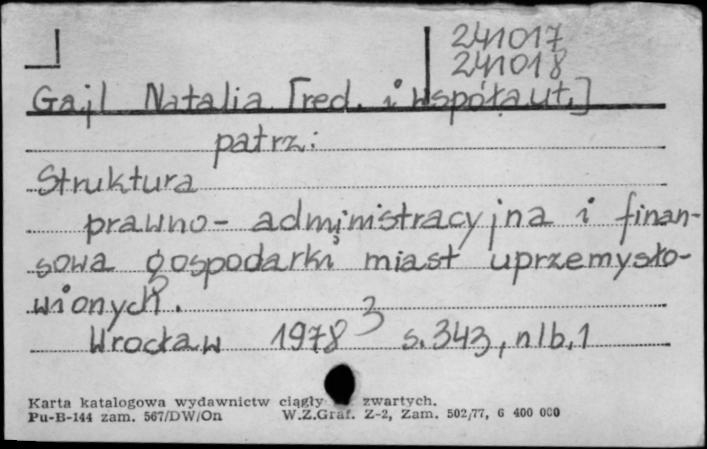 241017
241018
Gajl Natalia [red. i współaut.]
patrz:
Struktura
prawno-administracyjna i finan-
sowa gospodarki miast uprzemysło-
wionych.
Wrocław 1978 s. 343, nlb. 1
3
Karta katalogowa wydawnictw ciągły zwartych.
Pu-B-144 zam. 567/DW/On W.Z.Graf. Z-2, Zam. 502/77, 6 400 000